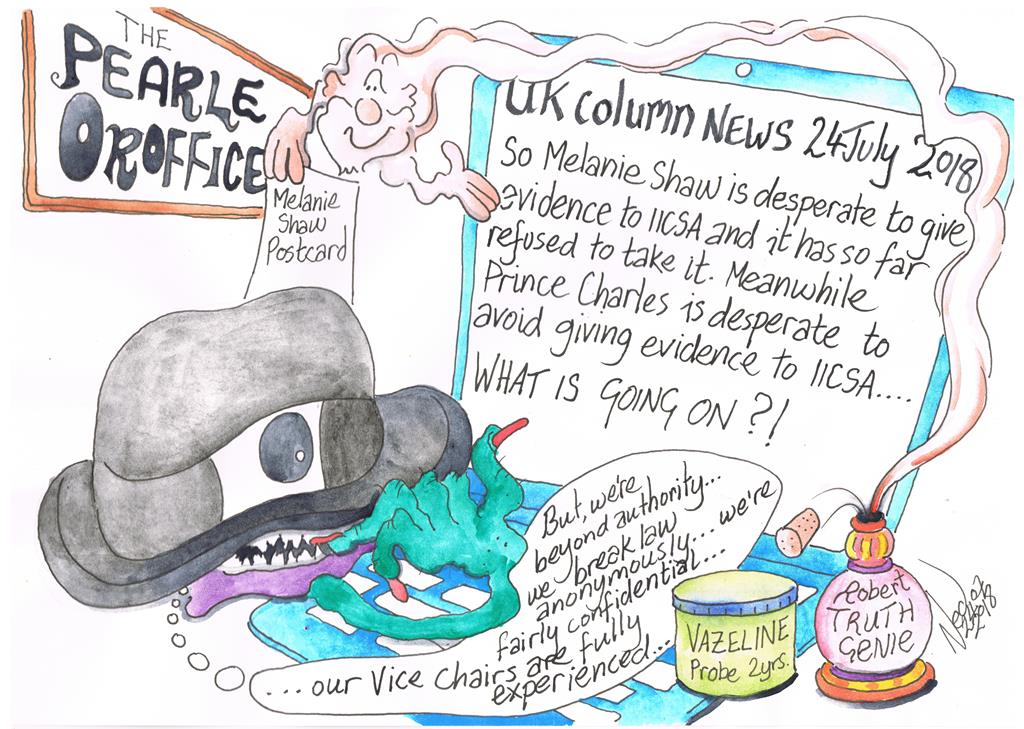 THE
PEARLE
OROFFICE
Melanie
Shaw
Postcard
UK column NEWS 24 July 2018
So Melanie Shaw is desperate to give
evidence to IICSA and it has so far
refused to take it. Meanwhile
Prince Charles is desperate to
avoid giving evidence to IICSA....
WHAT IS GOING ON ?!
But, we're
beyond authority...
we break law
anonymously.... we're
fairly confidential....
... our Vice Chairs are fully
experienced...
VAZELINE
Probe 2yrs.
Robert
TRUTH
GENIE